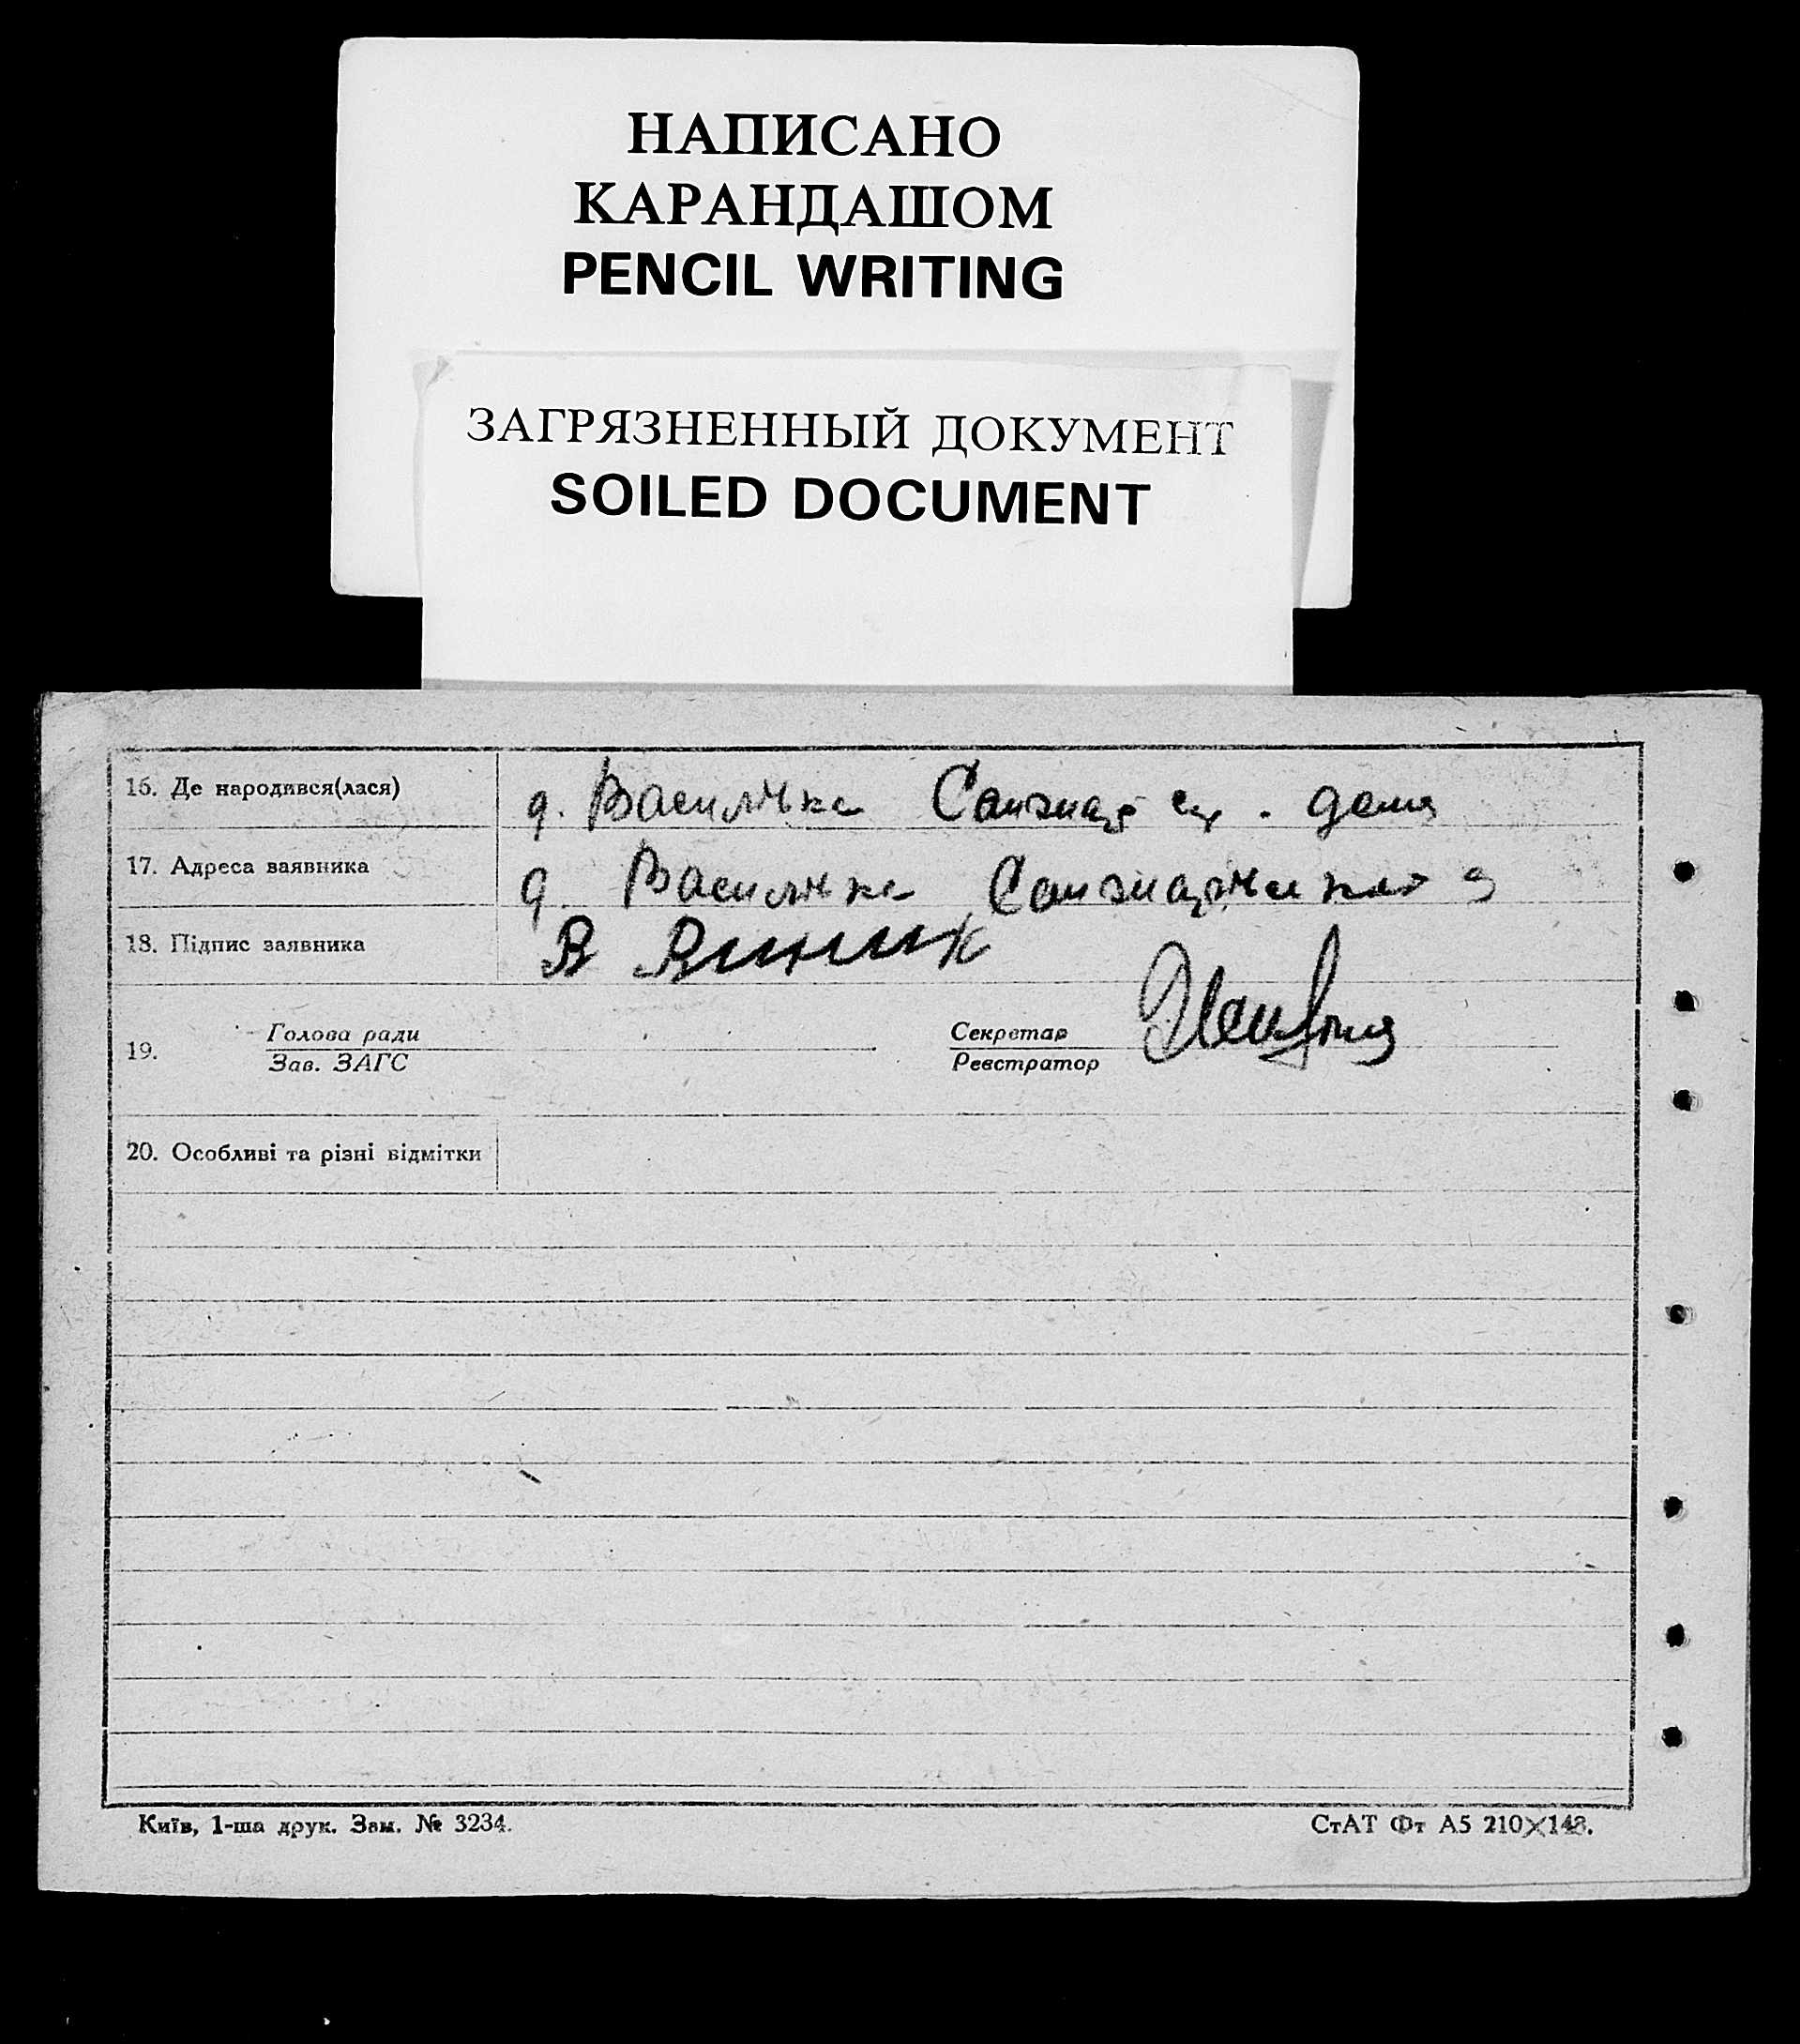 НАПИСАНО
КАРАНДАШОМ
PENCIL WRITING
ЗАГРЯЗНЕННЫЙ ДОКУМЕНТ
SOILED DOCUMENT
16. Де народився(лася) д. Василівка
17. Адреса заявника д. Василівка
18. Підпис заявника В Виник
Голова ради Секретар
19.
Зав. ЗАГС Реєстратор
20. Особливі та різні відмітки
Київ, 1-ша друк. Зам. № 3234. СтАТ Фт А5 210×148.